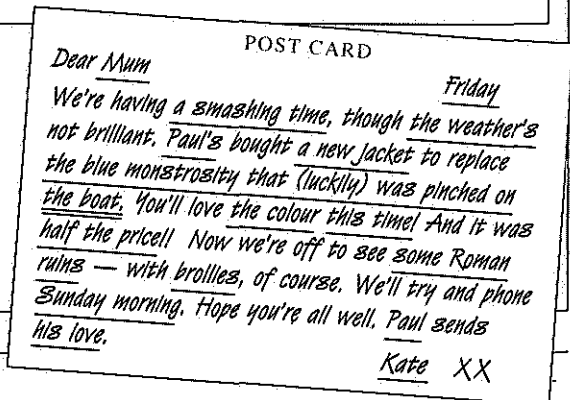 POST CARD
Dear Mum
Friday
We're having a smashing time, though the weather's
not brilliant. Paul's bought a new jacket to replace
the blue monstrosity that (luckily) was pinched on
the boat. You'll love the colour this time! And it was
half the price!! Now we're off to see some Roman
ruins — with brollies, of course. We'll try and phone
Sunday morning. Hope you're all well. Paul sends
his love.
Kate XX